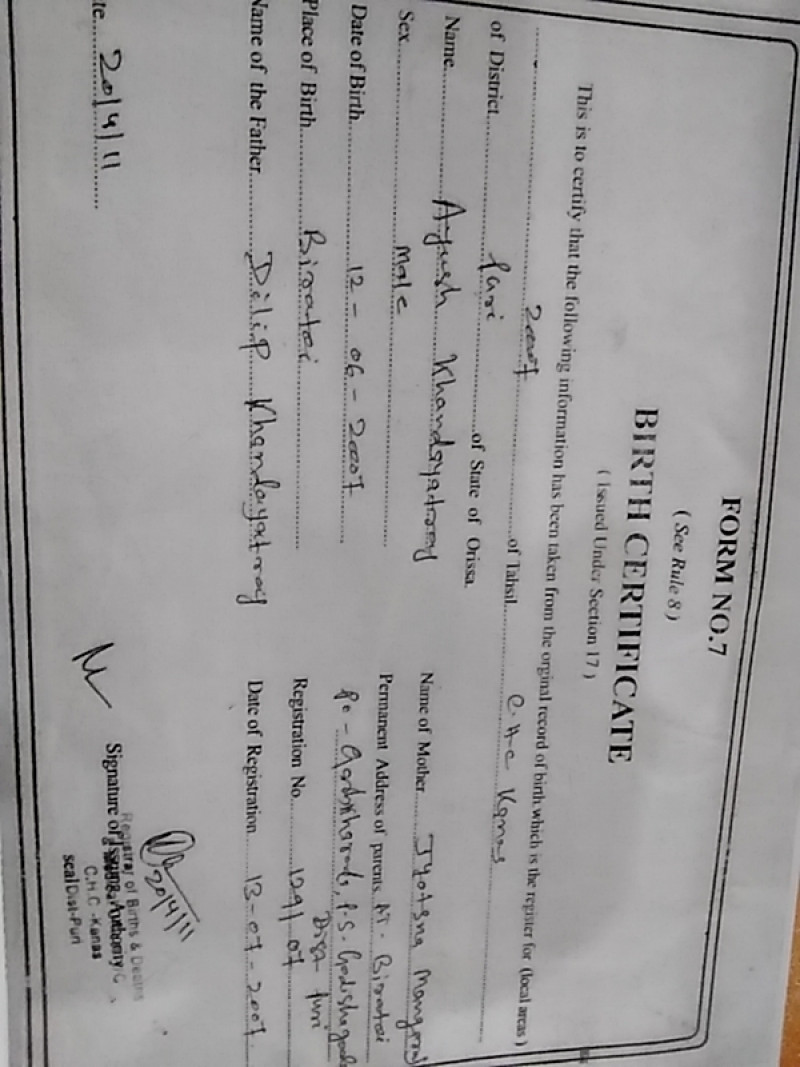 FORM NO.7
( See Rule 8 )
BIRTH CERTIFICATE
( Issued Under Section 17 )
This is to certify that the following information has been taken from the orginal record of birth which is the register for (local areas )
2007 of Tahsil C.H.C Kanas
of District Puri of State of Orissa.
Name Ayush Khandayatray
Sex Male
Date of Birth 12 - 06 - 2007
Place of Birth Biratei
Name of the Father Dilip Khandayatray
Name of Mother Jyotsna
Permanent Address of parents At - Biratei
Po - P.S -
Dist - Puri
Registration No. 1291/07
Date of Registration 13-07-2007
te 20/4/11
20/4/11
Signature of Issuing Authority
Registrar of Births & Deaths
C.H.C - Kanas
seal Dist-Puri